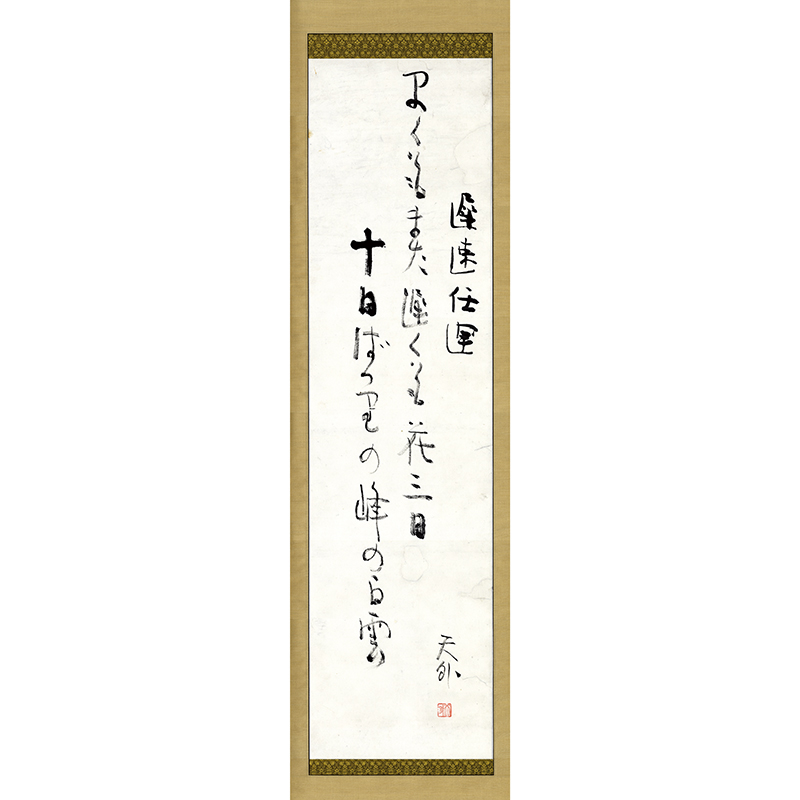 遅速任運
早くともまた遅くとも花三日
十日ばかりの峰の白雲
天外